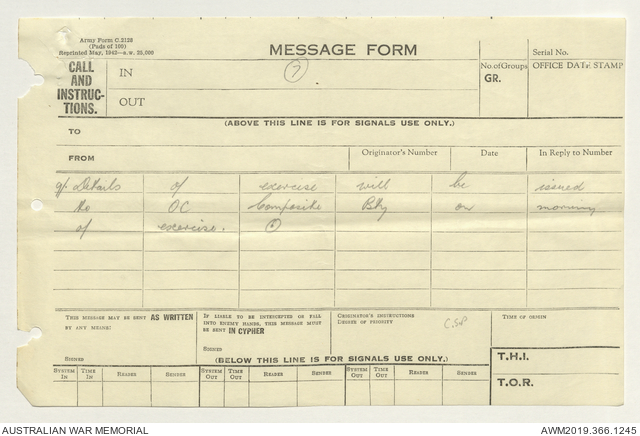 Army Form C.2128
(Pads of 100)
Reprinted May, 1942—s.w. 25,000
MESSAGE FORM
Serial No.
CALL AND INSTRUCTIONS.
IN
7
No. of Groups
GR.
OFFICE DATE STAMP
OUT
(ABOVE THIS LINE IS FOR SIGNALS USE ONLY.)
TO
FROM
Originator's Number
Date
In Reply to Number
Details of exercise will be issued
to OC Composite Bty on morning
of exercise.
THIS MESSAGE MAY BE SENT AS WRITTEN BY ANY MEANS:
IF LIABLE TO BE INTERCEPTED OR FALL INTO ENEMY HANDS, THIS MESSAGE MUST BE SENT IN CYPHER
ORIGINATOR'S INSTRUCTIONS
DEGREE OF PRIORITY
TIME OF ORIGIN
SIGNED
SIGNED
(BELOW THIS LINE IS FOR SIGNALS USE ONLY.)
T.H.I.
SYSTEM IN
TIME IN
READER
SENDER
SYSTEM OUT
TIME OUT
READER
SENDER
SYSTEM OUT
TIME OUT
READER
SENDER
T.O.R.
AUSTRALIAN WAR MEMORIAL
AWM2019.366.1245